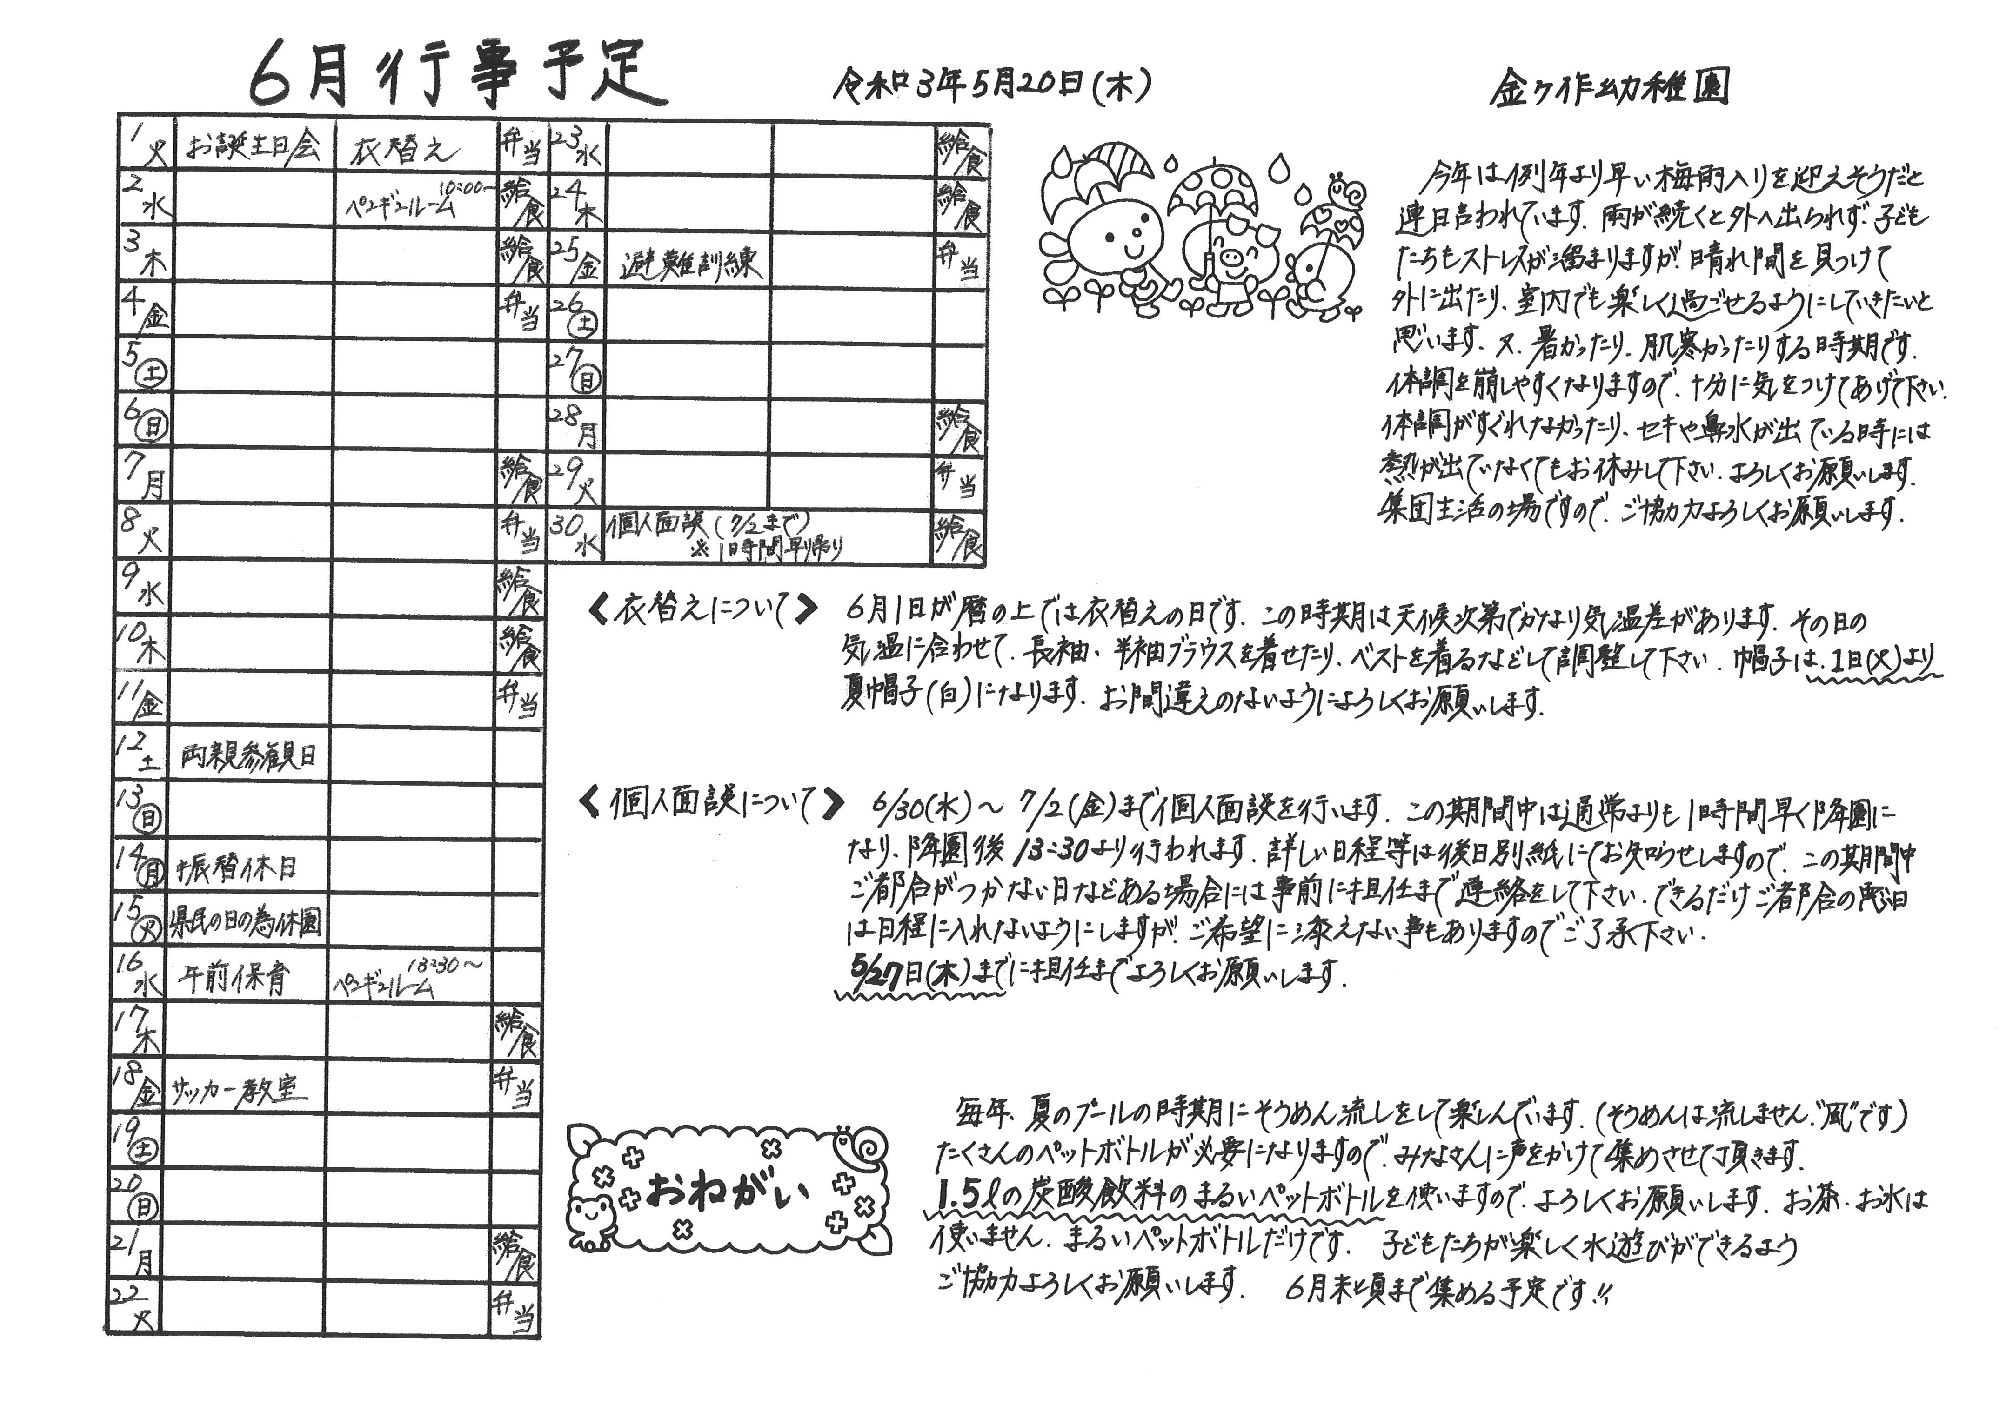 6月行事予定
令和3年5月20日(木)
金ヶ作幼稚園
1火 お誕生日会 衣替え 弁当
2水 ペンギンルーム 10:00~ 給食
3木 給食
4金 弁当
5土
6日
7月 給食
8火 弁当
9水 給食
10木 給食
11金 弁当
12土 両親参観日
13日
14月 振替休日
15火 県民の日の為休園
16水 午前保育 ペンギンルーム 13:30~
17木 給食
18金 サッカー教室 弁当
19土
20日
21月 給食
22火 弁当
23水 給食
24木 給食
25金 避難訓練 弁当
26土
27日
28月 給食
29火 弁当
30水 個人面談(7/2まで) 給食
※1時間早帰り
今年は例年より早い梅雨入りを迎えそうだと
連日言われています。雨が続くと外へ出られず、子ども
たちもストレスが溜まりますが、晴れ間を見つけて
外に出たり、室内でも楽しく過ごせるようにしていきたいと
思います。又、暑かったり、肌寒かったりする時期です。
体調を崩しやすくなりますので、十分に気をつけてあげて下さい。
体調がすぐれなかったり、セキや鼻水が出ている時には
熱が出ていなくてもお休みして下さい。よろしくお願いします。
集団生活の場ですので、ご協力よろしくお願いします。
<衣替えについて> 6月1日が暦の上では衣替えの日です。この時期は天候次第でかなり気温差があります。その日の
気温に合わせて、長袖、半袖ブラウスを着せたり、ベストを着るなどして調整して下さい。帽子は、1日(火)より
夏帽子(白)になります。お間違えのないようによろしくお願いします。
<個人面談について> 6/30(水)~7/2(金)まで個人面談を行います。この期間中は通常よりも1時間早く降園に
なり、降園後13:30より行われます。詳しい日程等は後日別紙にてお知らせしますので、この期間中
ご都合がつかない日などある場合には事前に担任まで連絡をして下さい。できるだけご都合の悪い日
は日程に入れないようにしますが、ご希望に添えない事もありますのでご了承下さい。
5/27日(木)までに担任までよろしくお願いします。
おねがい
毎年、夏のプールの時期にそうめん流しをして楽しんでいます。(そうめんは流しません。"風"です)
たくさんのペットボトルが必要になりますので、みなさんに声をかけて集めさせて頂きます。
1.5ℓの炭酸飲料のまるいペットボトルを使いますので、よろしくお願いします。お茶、お水は
使いません。まるいペットボトルだけです。 子どもたちが楽しく水遊びができるよう
ご協力よろしくお願いします。 6月末頃まで集める予定です!!